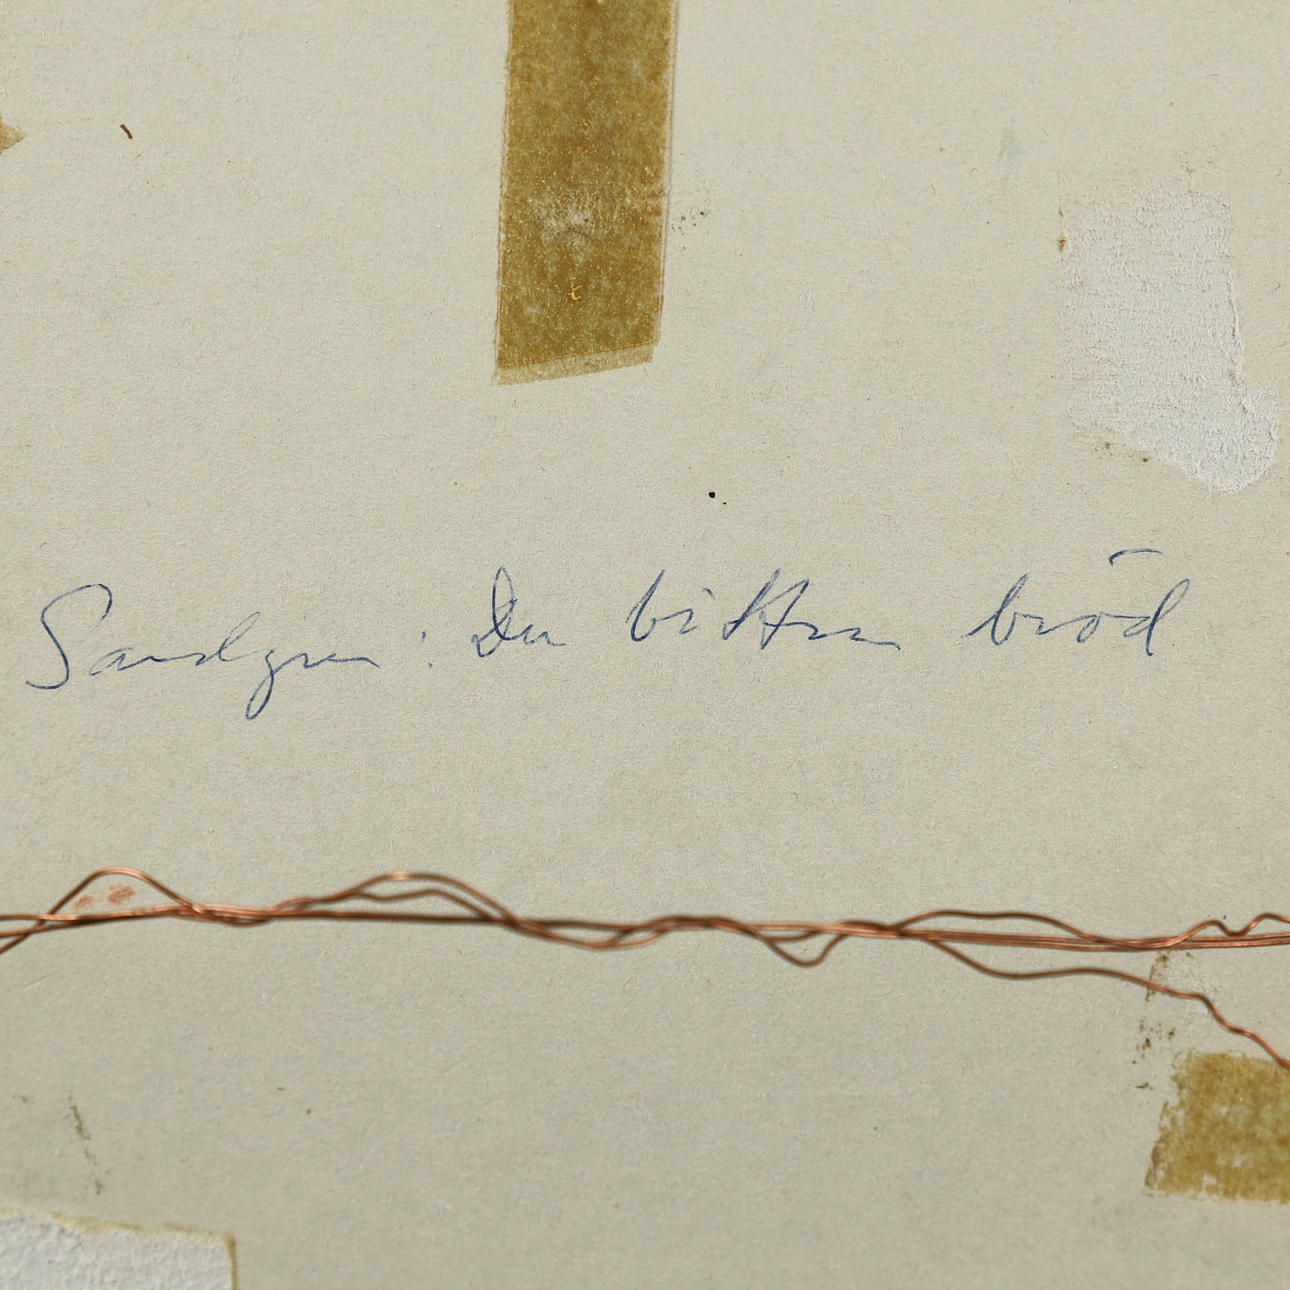 Sandgren : Den bittra bröd